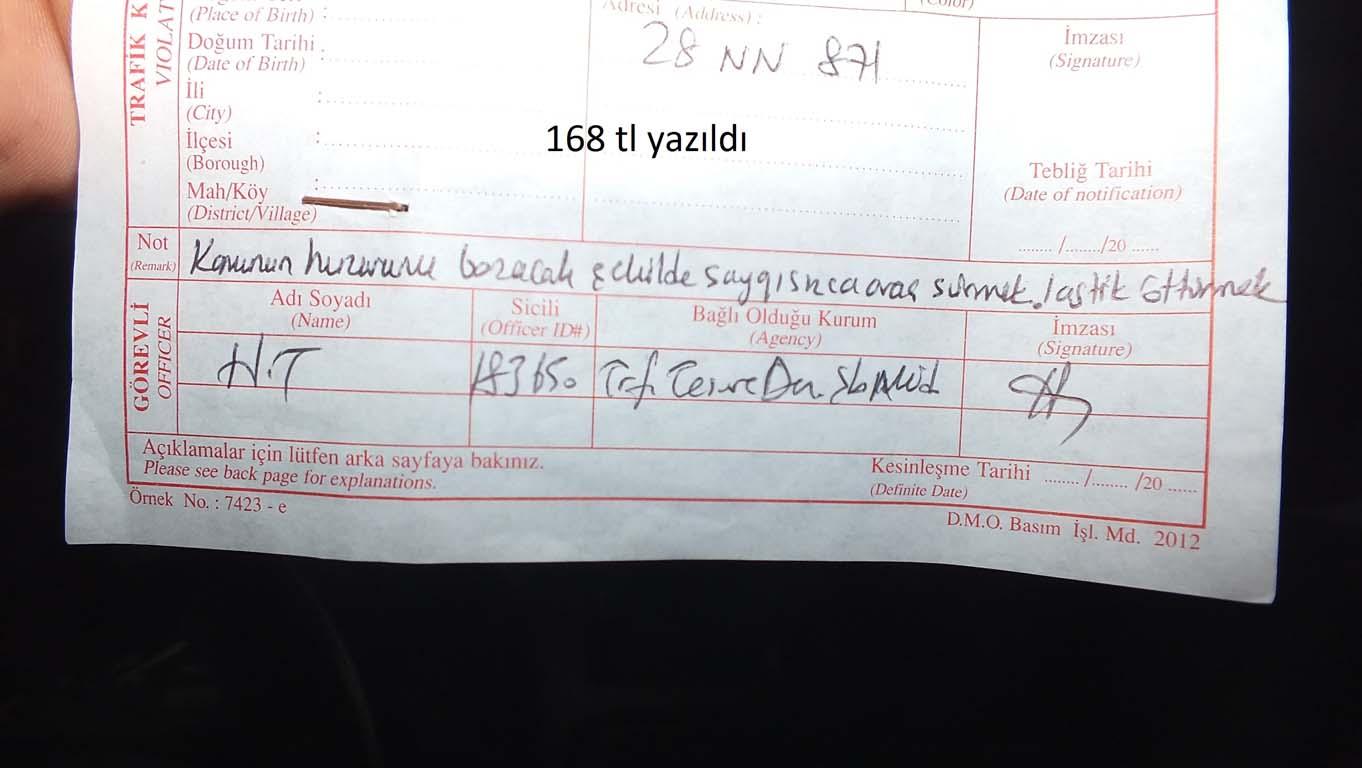 (Color)
TRAFİK K
VIOLAT
(Place of Birth) :
Adresi (Address) :
Doğum Tarihi :
(Date of Birth)
28 NN 871
İmzası
(Signature)
İli :
(City)
168 tl yazıldı
İlçesi :
(Borough)
Tebliğ Tarihi
(Date of notification)
Mah/Köy :
(District/Village)
......../......../20 ......
Not
(Remark)
Kamunun huzurunu bozacak şekilde saygısızca araç sürmek. lastik öttürmek
GÖREVLİ
OFFICER
Adı Soyadı
(Name)
Sicili
(Officer ID#)
Bağlı Olduğu Kurum
(Agency)
İmzası
(Signature)
H.T
183650
Açıklamalar için lütfen arka sayfaya bakınız.
Please see back page for explanations.
Kesinleşme Tarihi ......../......../20 ......
(Definite Date)
Örnek No. : 7423 - e
D.M.O. Basım İşl. Md. 2012